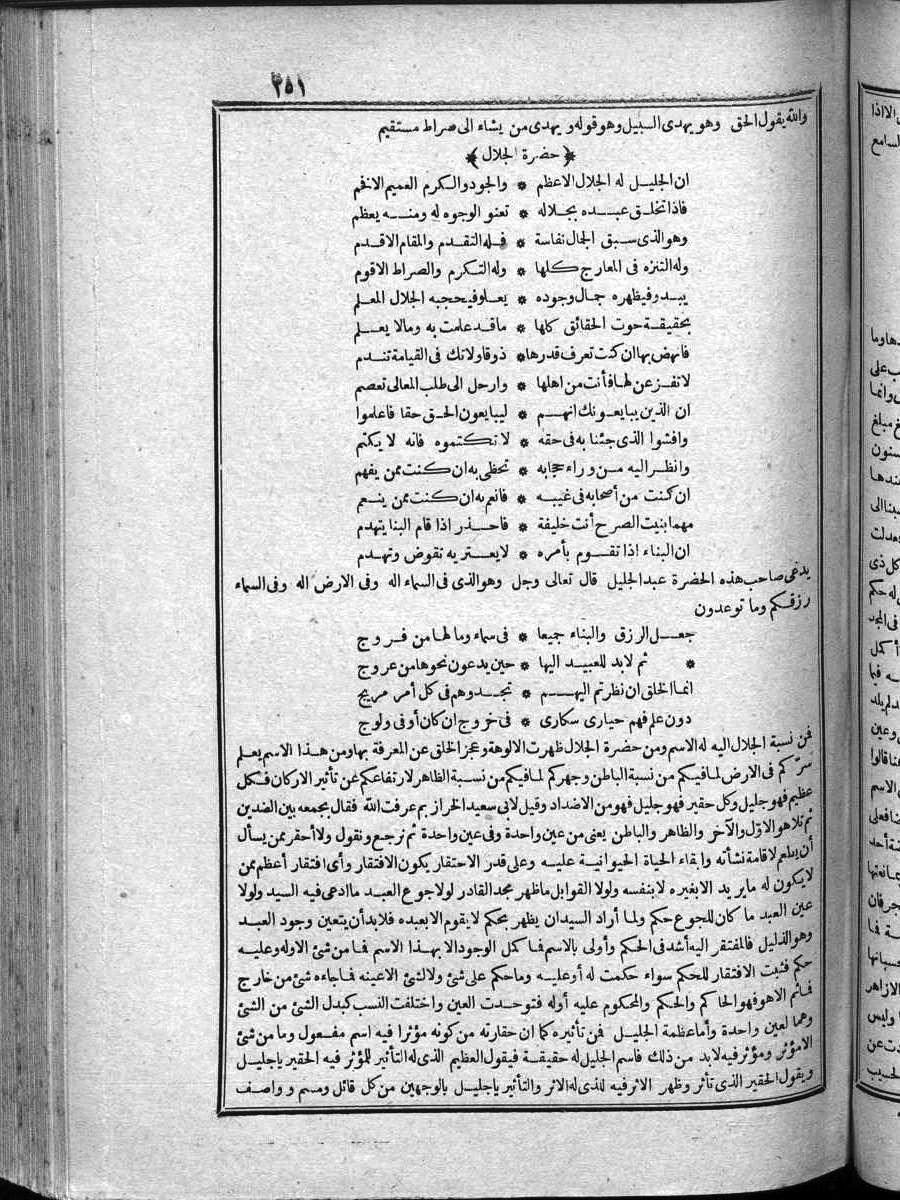 ٢٥١
والله يقول الحق وهو يهدى السبيل وهو قوله ويهدى من يشاء الى صراط مستقيم
﴿ حضرة الجلال ﴾
ان الجليل له الجلال الاعظم * والجود والكرم العميم الافخم
فاذا تخلق عبده بجلاله * تعنو الوجوه له ومنه يعظم
وهو الذى سبق الجمال نفاسة * فله التقدم والمقام الاقدم
وله التنزه فى المعارج كلها * وله التكرم والصراط الاقوم
يبدو فيظهره جمال وجوده * يعلو فيحجبه الجلال المعلم
بحقيقة حوت الحقائق كلها * ما قد علمت به وما لا يعلم
فانهض بها ان كنت تعرف قدرها * ذوقا ولا تك فى القيامة تندم
لا تفزعن لها فأنت من اهلها * وارحل الى طلب المعالى تعصم
ان الذين يبايعونك انهم * ليبايعون الحق حقا فاعلموا
وافشوا الذى جئنا به فى حقه * لا تكتموه فانه لا يكتم
وانظر اليه من وراء حجابه * تحظى به ان كنت ممن يفهم
ان كنت من أصحابه فى غيبه * فانعم به ان كنت ممن ينعم
مهما بنيت الصرح أنت خليفة * فاحذر اذا قام البنا يتهدم
ان البناء اذا تقوم بأمره * لا يعتريه تقوض وتهدم
يدعى صاحب هذه الحضرة عبد الجليل قال تعالى وجل وهو الذى فى السماء اله وفى الارض اله وفى السماء
رزقكم وما توعدون
جعل الرزق والبناء جميعا * فى سماء وما لها من فروج
* ثم لابد للعبيد اليها * حين يدعون نحوها من عروج
انما الخلق ان نظرتم اليهم * تجدوهم فى كل أمر مريج
دون علم فهم حيارى سكارى * فى خروج ان كان أو فى ولوج
فمن نسبة الجلال اليه له الاسم ومن حضرة الجلال ظهرت الالوهة وعجز الخلق عن المعرفة بها ومن هذا الاسم يعلم
سركم فى الارض لما فيكم من نسبة الباطن وجهركم لما فيكم من نسبة الظاهر لارتفاعكم عن تأثير الاركان فكل
عظيم فهو جليل وكل حقير فهو جليل فهو من الاضداد وقيل لابى سعيد الخراز بم عرفت الله فقال بجمعه بين الضدين
ثم تلا هو الاول والآخر والظاهر والباطن يعنى من عين واحدة وفى عين واحدة ثم نرجع ونقول ولا أحقر ممن يسأل
أن يطعم لاقامة نشأته وابقاء الحياة الحيوانية عليه وعلى قدر الاحتقار يكون الافتقار وأى افتقار أعظم ممن
لا يكون له ما يريد الا بغيره لا بنفسه ولولا القوابل ما ظهر مجد القادر لولا جوع العبد ما ادعى فيه السيد ولولا
عين العبد ما كان للجوع حكم ولما أراد السيد ان يظهر بحكم لا يقوم الا بعبده فلابد أن يتعين وجود العبد
وهو الذليل فالمفتقر اليه أشد فى الحكم وأولى بالاسم فما كمل الوجود الا بهذا الاسم فما من شئ الا وله وعليه
حكم فثبت الافتقار للحكم سواء حكمت له أو عليه وما حكم على شئ ولا لشئ الا عينه فما جاءه شئ من خارج
فما ثم الا هو فهو الحاكم والحكم والمحكوم عليه أو له فتوحدت العين واختلفت النسب كبدل الشئ من الشئ
وهما لعين واحدة وأما عظمة الجليل فمن تأثيره كما ان حقارته من كونه مؤثرا فيه اسم مفعول وما من شئ
الا مؤثر ومؤثر فيه لابد من ذلك فاسم الجليل له حقيقة فيقول العظيم الذى له التأثير للمؤثر فيه الحقير يا جليل
ويقول الحقير الذى تأثر وظهر الاثر فيه للذى له الاثر والتأثير يا جليل بالوجهين من كل قائل ومسم وواصف